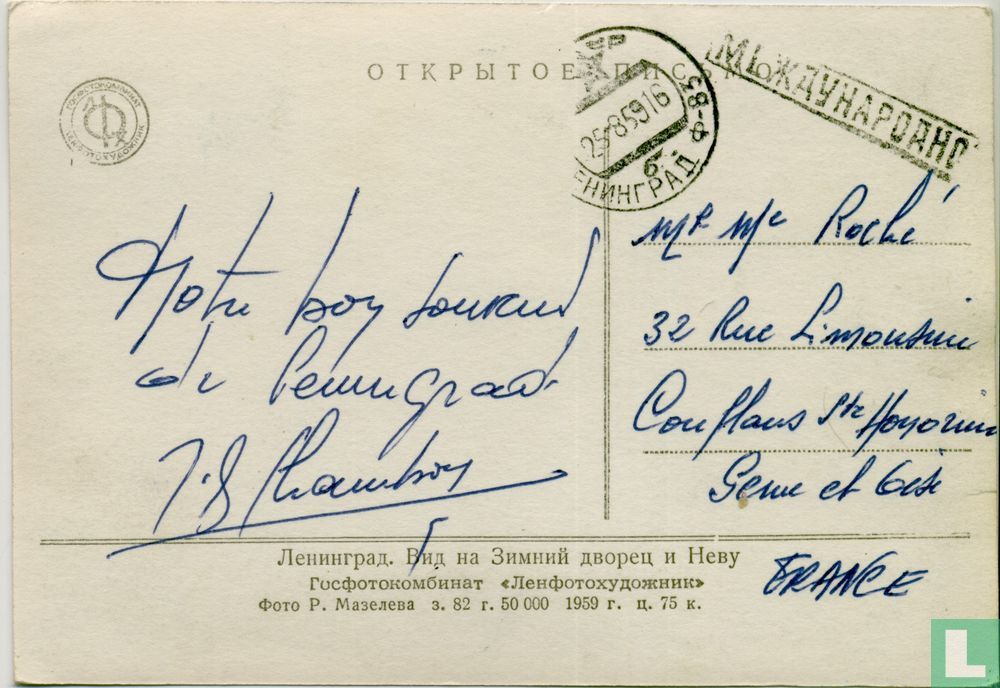 ОТКРЫТОЕ ПИСЬМО
МЕЖДУНАРОДНО
25-8 59 16
б.
ЛЕНИНГРАД Ф-83
ГОСФОТОКОМБИНАТ
ЛЕНФОТОХУДОЖНИК
Notre bon souvenir
de Leningrad.
Mr Me Roché
32 Rue Limousine
Conflans Ste Honorine
Seine et Oise
FRANCE
Ленинград. Вид на Зимний дворец и Неву
Госфотокомбинат «Ленфотохудожник»
Фото Р. Мазелева з. 82 г. 50 000 1959 г. ц. 75 к.
L